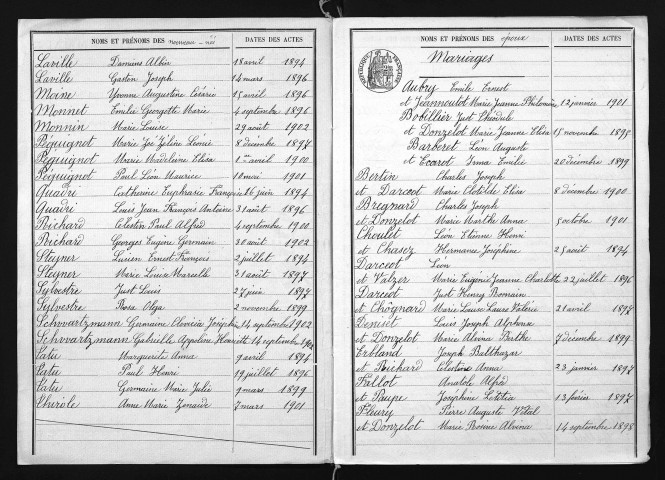 NOMS ET PRÉNOMS DES
DATES DES ACTES
Laville Damiens Albin 18 avril 1894
Laville Gaston Joseph 14 mars 1896
Moine Yvonne Augustine Césarie 15 avril 1896
Monnet Emilie Georgette Marie 4 septembre 1896
Monnin Marie Louise 29 août 1902
Péquignot Marie Zoé Zéline Léonie 8 décembre 1897
Péquignot Marie Madeleine Elisa 1er avril 1900
Péquignot Paul Léon Maurice 10 mai 1901
Quadri Catherine Euphrasie Françoise 26 juin 1894
Quadri Louis Jean François Antoine 31 août 1896
Richard Célestin Paul Alfred 4 septembre 1900
Richard Georges Eugène Germain 31 août 1902
Steyner Lucien Ernest François 2 juillet 1894
Steyner Marie Louise Marcelle 31 août 1897
Sylvestre Just Louis 27 juin 1897
Sylvestre Rosa Olga 2 novembre 1899
Schwartzmann Germaine 14 septembre 1902
Schwartzmann Gabrielle 14 septembre
Marguerite Anna 9 avril 1894
Paul Henri 19 juillet 1896
Germaine Marie Julie 9 mars 1899
Anne Marie Zénaïde 7 mars 1901
NOMS ET PRÉNOMS DES époux
DATES DES ACTES
RÉPUBLIQUE FRANÇAISE
Mariages
Aubry Emile Ernest
et Jeanmoutot Marie Jeanne Philomène 12 janvier 1901
Bobillier Just Théodule
et Donzelot Marie Jeanne Elisa 15 novembre 1895
Barberet Léon Auguste
et Ecarot Irma Emilie 20 décembre 1899
Bertin Charles Joseph
et Darceot Marie Clotilde Elisa 8 décembre 1900
Bregnard Charles Joseph
et Donzelot Marie Marthe Anna 5 octobre 1901
Choulet Léon Etienne Henri
et Chasez Hermance Joséphine 25 août 1894
Darceot Léon
et Valzer Marie Eugénie Jeanne Charlotte 22 juillet 1896
Darceot Just Henry Romain
et Chôgnard Marie Louise Laure Valérie 21 avril 1897
Deniset Louis Joseph Alphonse
et Donzelot Marie Alvina Berthe 7 décembre 1899
Erbland Joseph Balthazar
et Richard Célestine Anna 23 janvier 1897
Fallot Anatole Alfred
et Paupe Joséphine Lœtitia 13 février 1897
Fleury Pierre Auguste Vital
et Donzelot Marie Rosine Alvina 14 septembre 1898